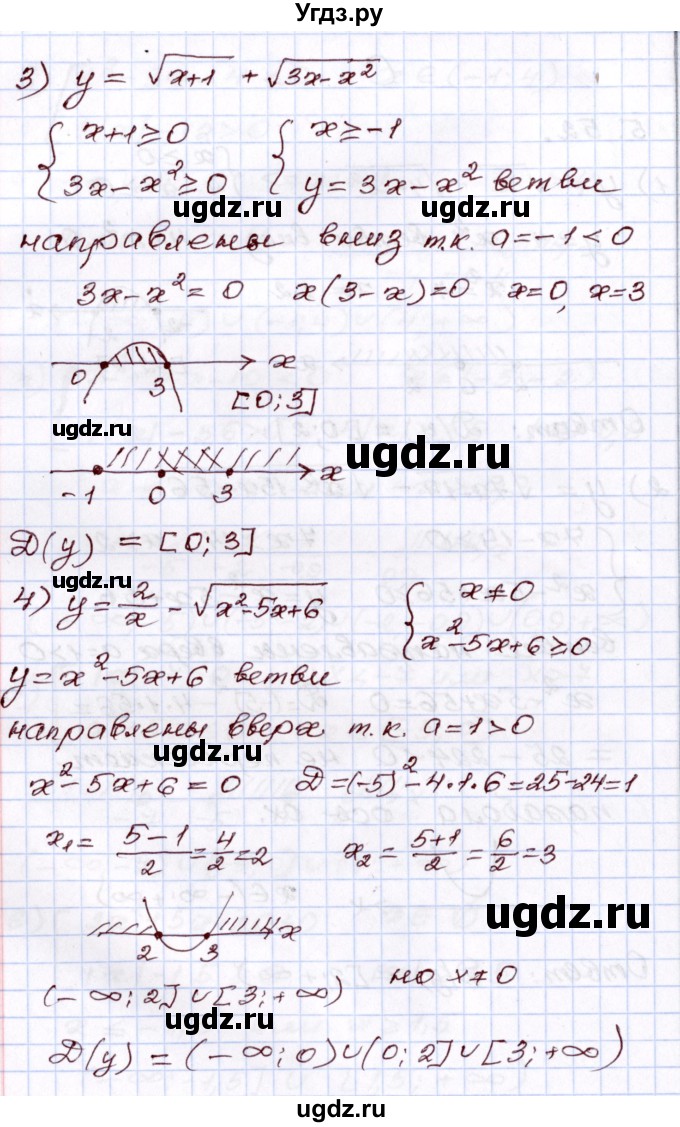 Угдз.ру
3) y = √(x+1) + √(3x-x²)
{ x+1≥0 { x≥-1
ugdz.ru
{ 3x-x²≥0 { y=3x-x² ветви
ugdz.ru ugdz.ru
направлены вниз т.к. a=-1<0
3x-x²=0 x(3-x)=0 x=0, x=3
0 3 x
[0;3]
ugdz.ru
ugdz.ru
-1 0 3 x
D(y) = [0;3]
ugdz.ru
4) y = 2/x - √(x²-5x+6) { x≠0
{ x²-5x+6≥0
y=x²-5x+6 ветви
направлены вверх т.к. a=1>0
ugdz.ru
x²-5x+6=0 D=(-5)²-4·1·6=25-24=1
x₁= (5-1)/2 = 4/2 = 2 x₂ = (5+1)/2 = 6/2 = 3
ugdz.ru
2 3 x
но x≠0
(-∞;2]∪[3;+∞)
ugdz.ru
D(y) = (-∞;0)∪(0;2]∪[3;+∞)
ugdz.ru